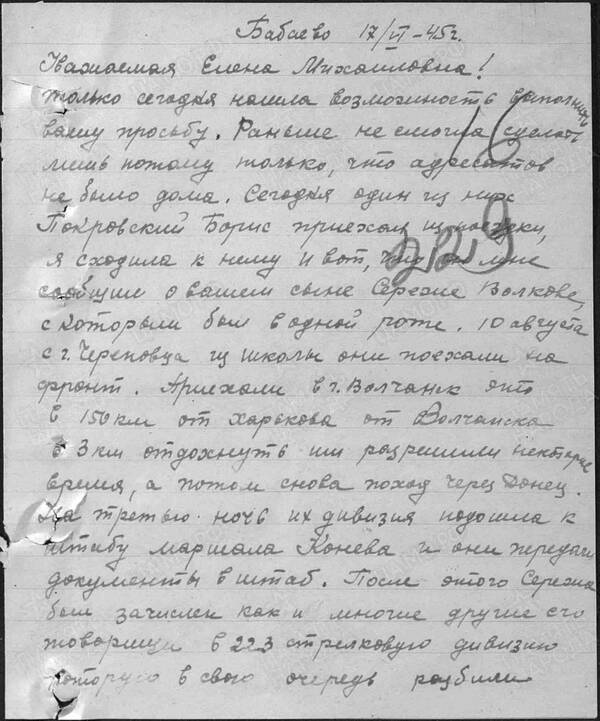 Бабаево 17/VI-45г.
Уважаемая Елена Михаиловна!
только сегодня нашла возможность выполнить
вашу просьбу. Раньше не смогла сделать
лишь потому только, что адресатов
не было дома. Сегодня один из них
Покровский Борис приехал из поездки,
я сходила к нему и вот, что он мне
сообщил о вашем сыне Сереже Волкове,
с которым был в одной роте. 10 августа
с г. Череповца из школы они поехали на
фронт. Приехали в г. Волчанск это
в 150 км от Харькова от Волчанска
в 3 км отдохнуть им разрешили некоторое
время, а потом снова поход через Донец.
На третью ночь их дивизия подошла к
штабу маршала Конева и они передали
документы в штаб. После этого Сережа
был зачислен как и многие другие его
товарищи в 223 стрелковую дивизию
которую в свою очередь разбили